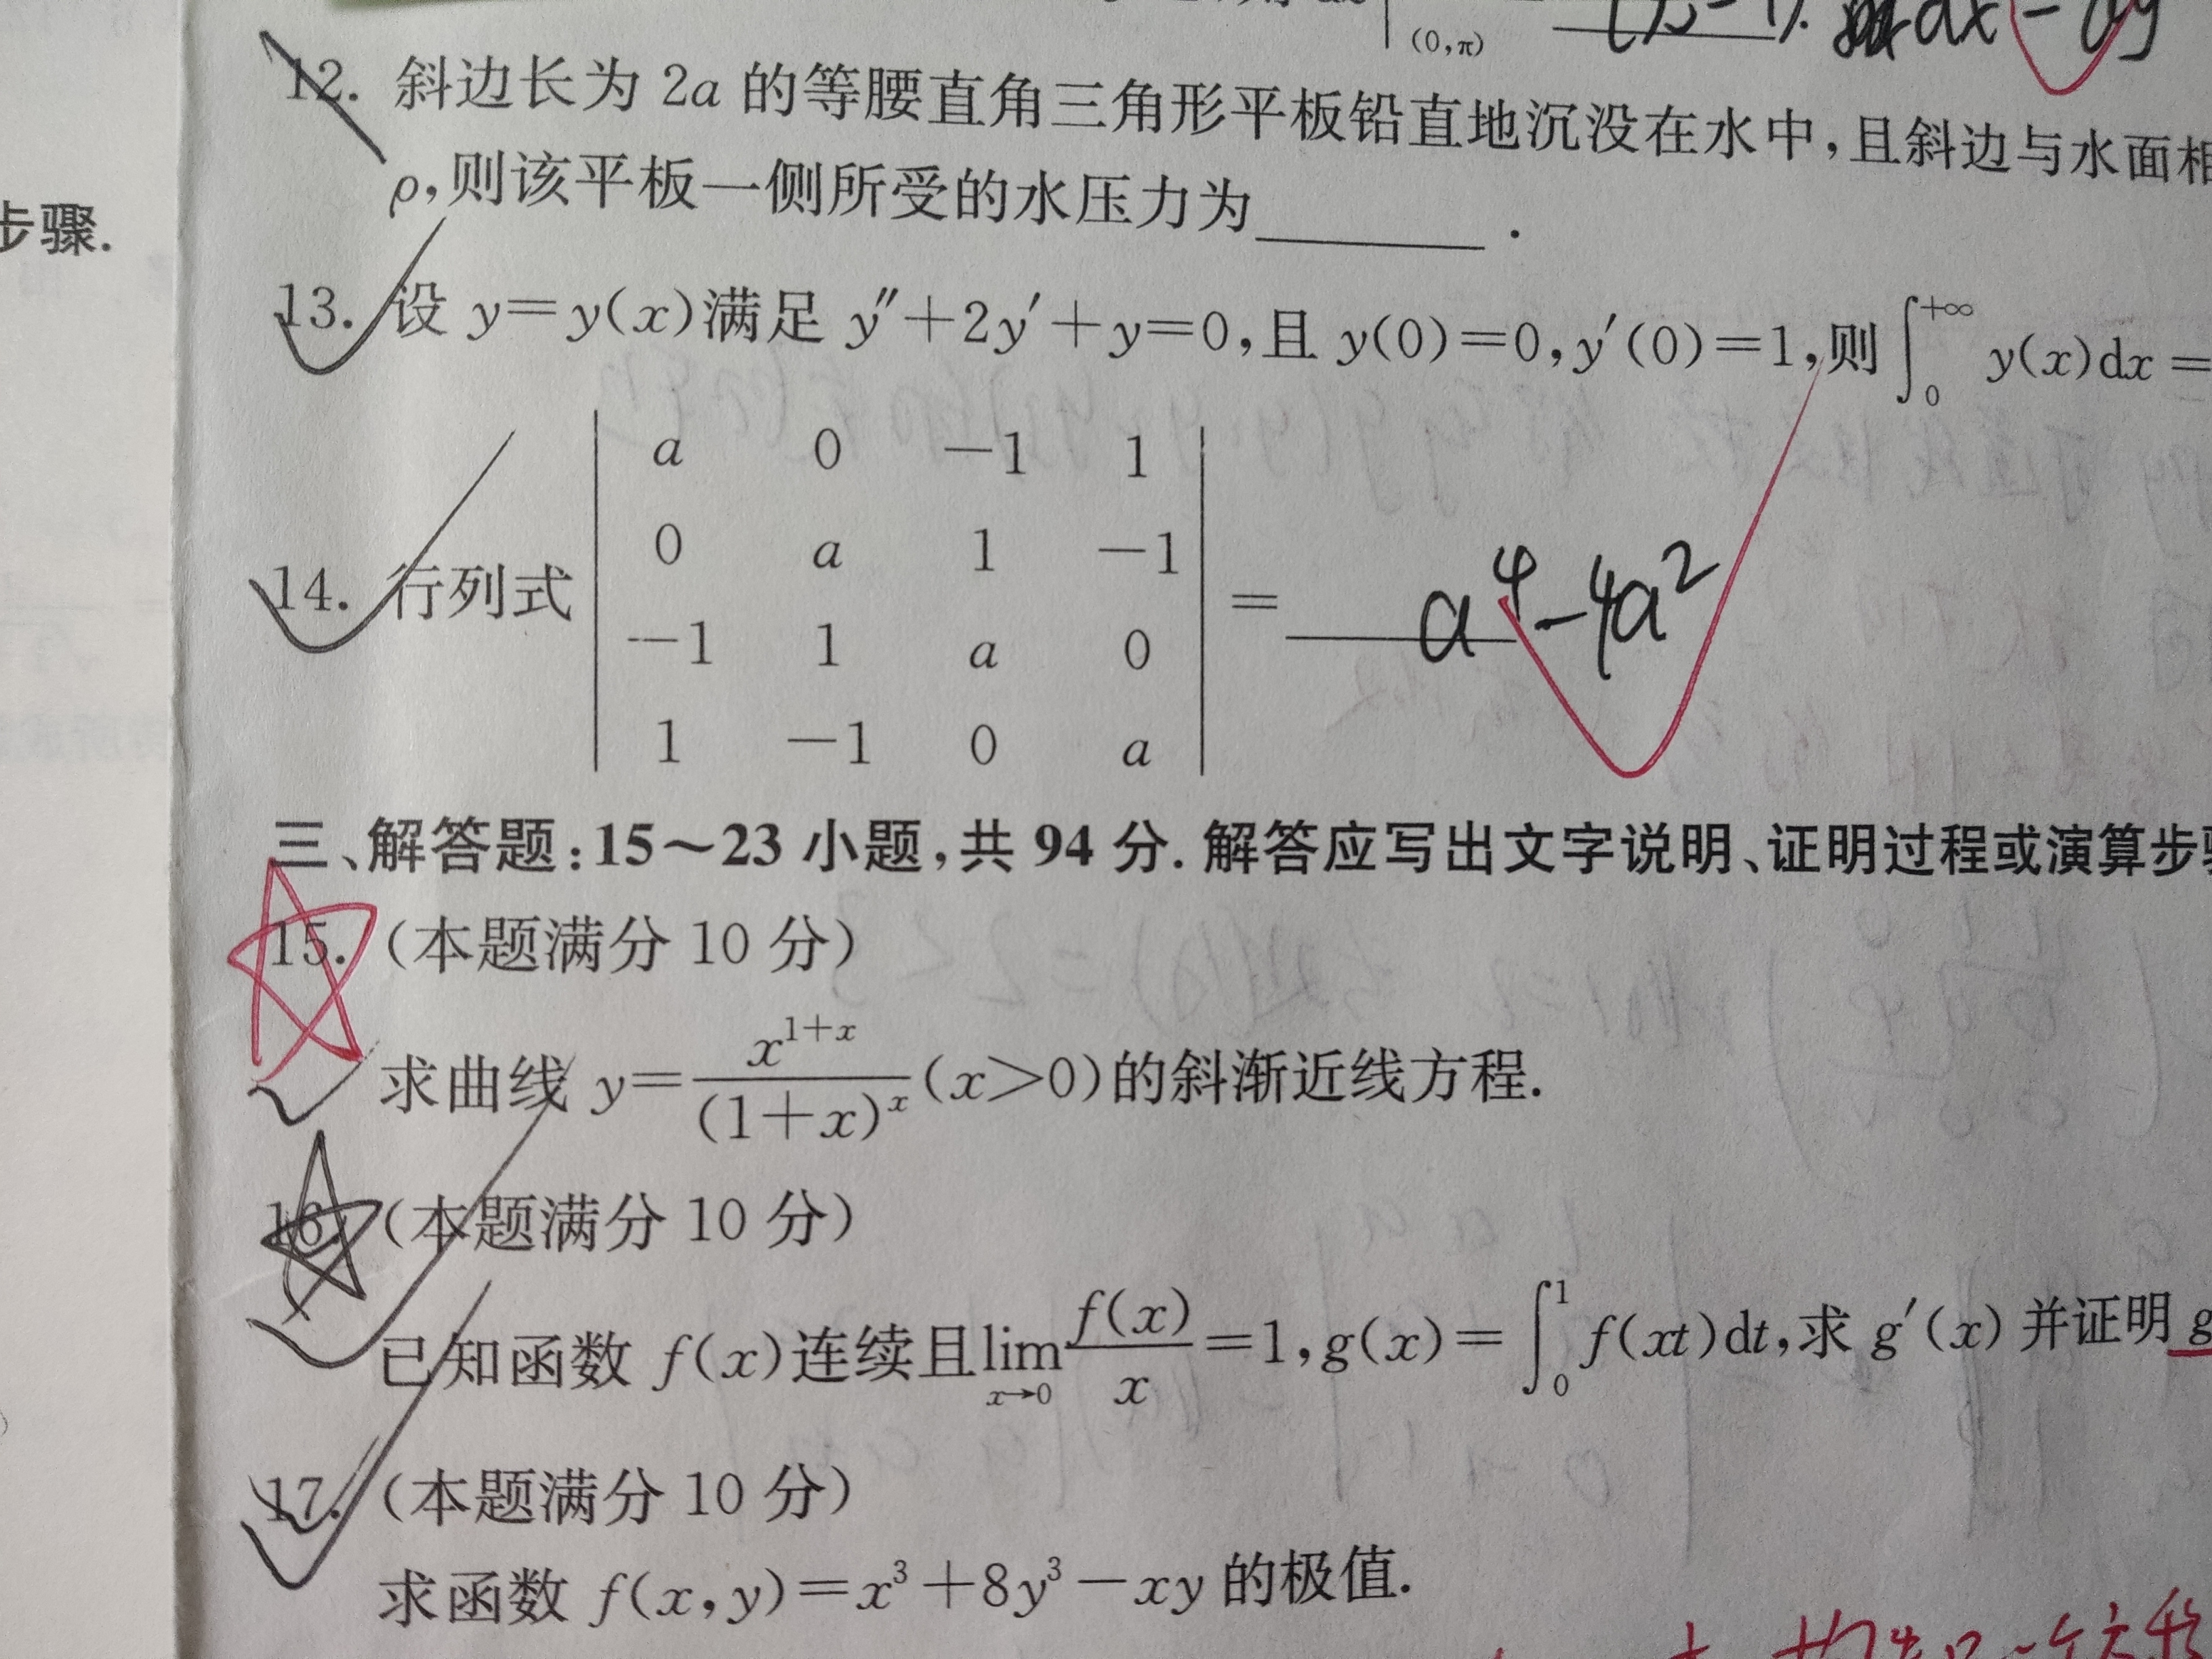 (0,π) dx - dy
12. 斜边长为 2a 的等腰直角三角形平板铅直地沉没在水中,且斜边与水面相
步骤.
ρ,则该平板一侧所受的水压力为______.
13. 设 y=y(x)满足 y″+2y′+y=0,且 y(0)=0,y′(0)=1,则∫₀^{+∞} y(x)dx=
a 0 −1 1
0 a 1 −1
14. 行列式 = a⁴-4a²
−1 1 a 0
1 −1 0 a
三、解答题:15～23 小题,共 94 分. 解答应写出文字说明、证明过程或演算步骤
15. (本题满分 10 分)
求曲线 y=x^{1+x}/(1+x)^x (x>0)的斜渐近线方程.
16. (本题满分 10 分)
已知函数 f(x)连续且lim_{x→0} f(x)/x=1,g(x)=∫₀¹ f(xt)dt,求 g′(x)并证明 g
17. (本题满分 10 分)
求函数 f(x,y)=x³+8y³−xy 的极值.